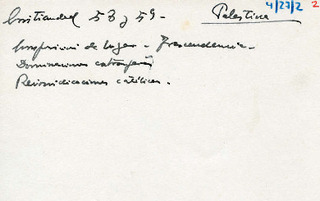 Cristiandad 58 y 59 - Palestina 4/27/2 2
de lugar - Trascendencia -
Dominaciones
Reivindicaciones católicas.